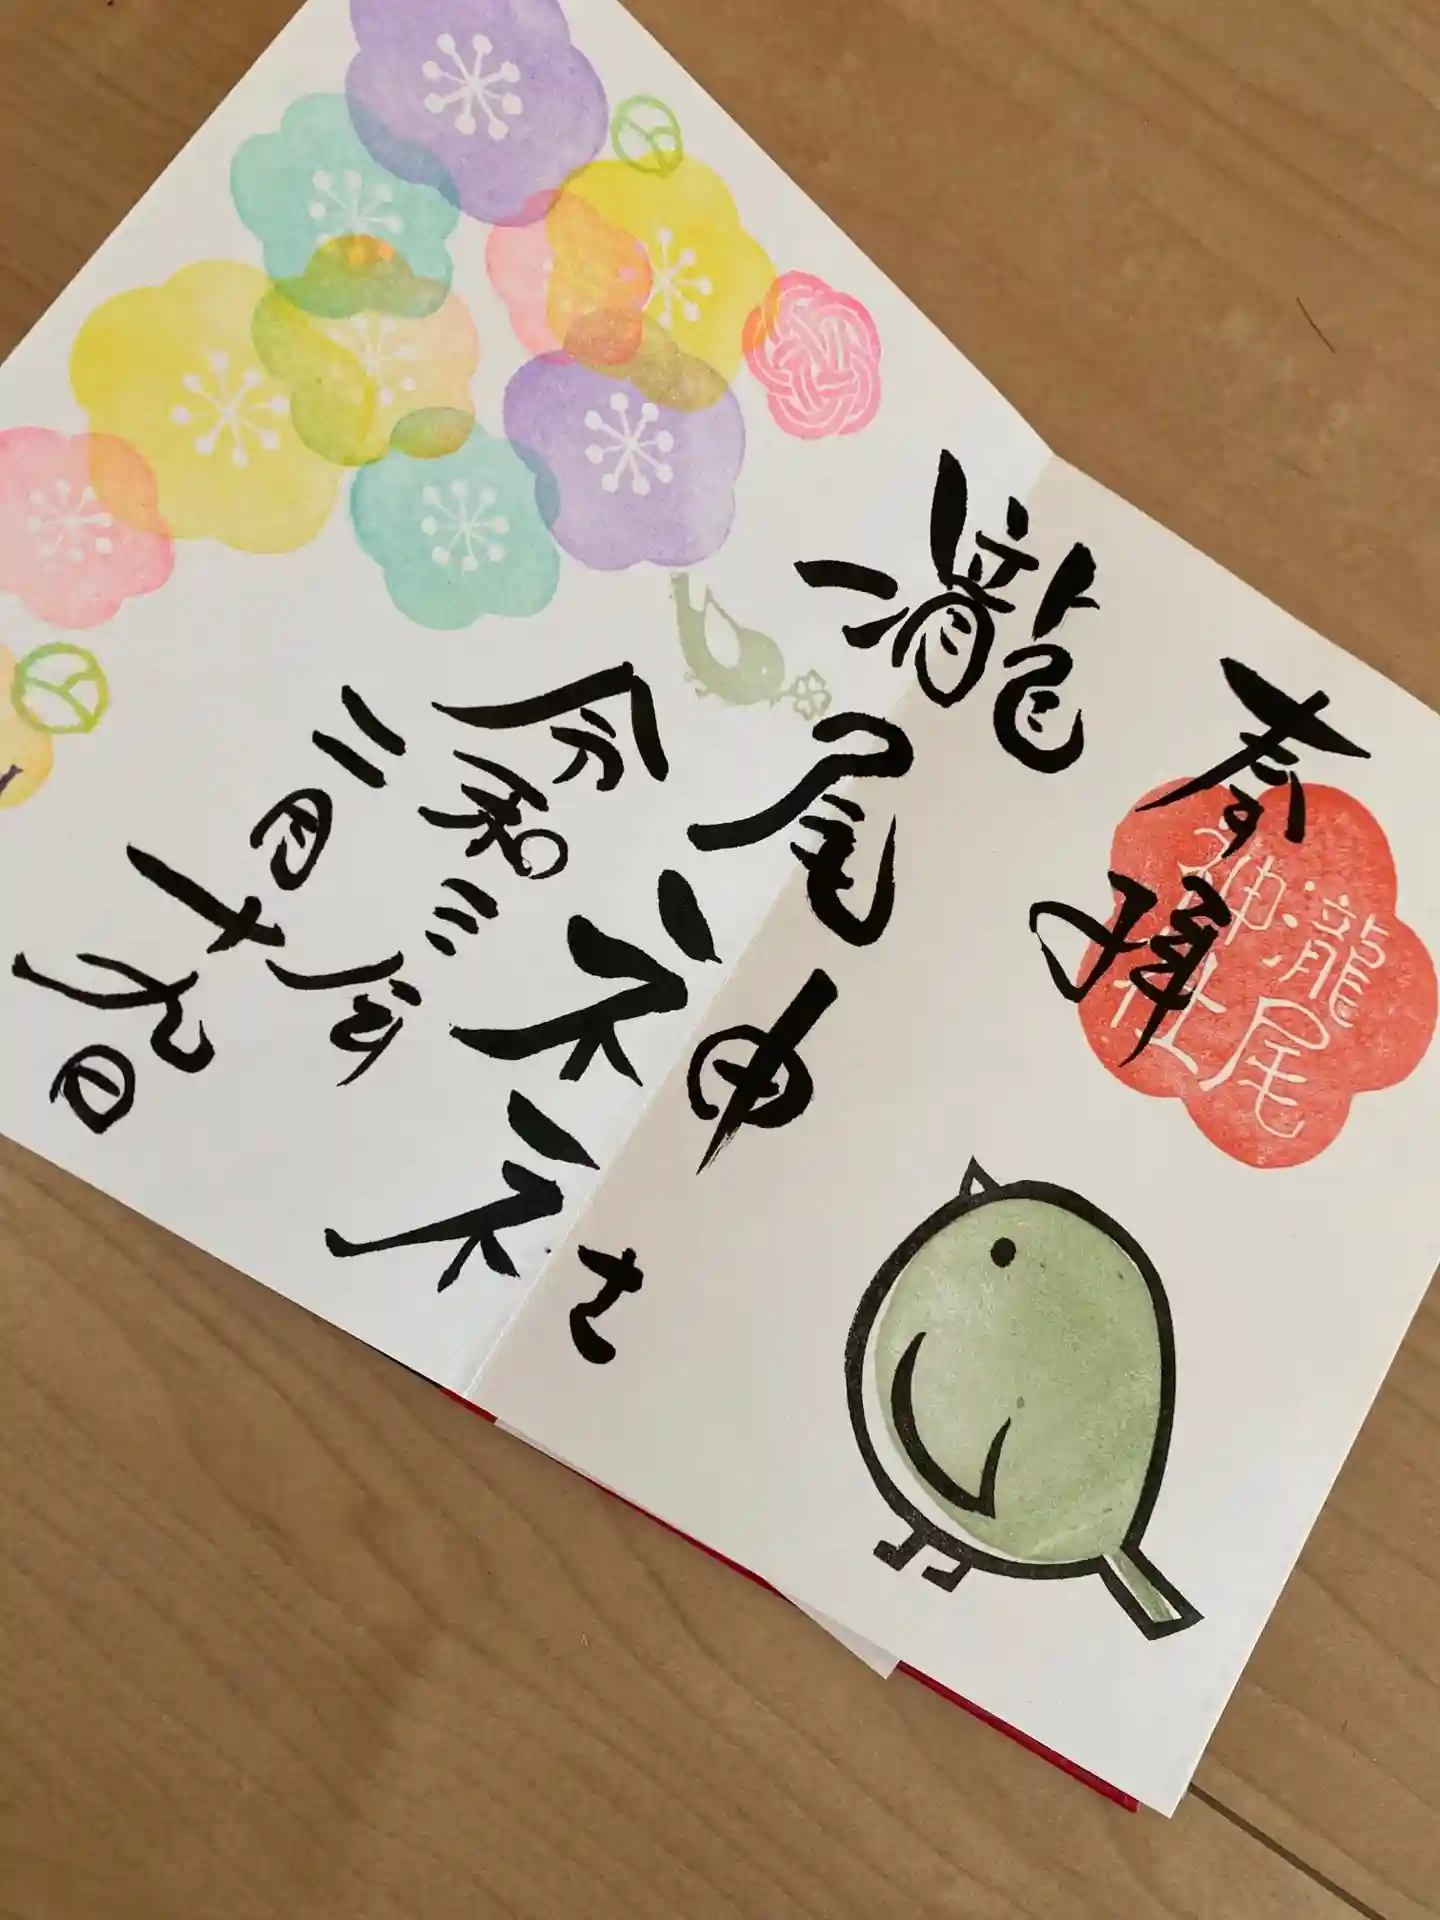 奉拝
瀧尾神社
令和三年
二月十九日
瀧尾
神社